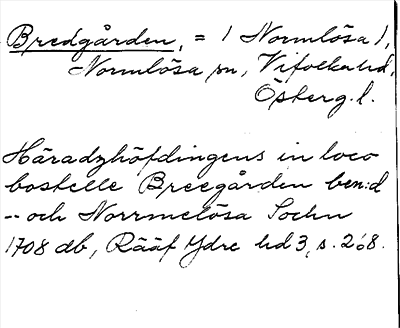 Bredgården, = 1 Normlösa 1,
Normlösa sn, Vifolka hd,
Österg. l.
Häradzhöfdingens in loco
bostelle Breegården ben:d
-- och Norrmelösa Sochn
1708 db, Rääf Ydre hd 3, s. 268.